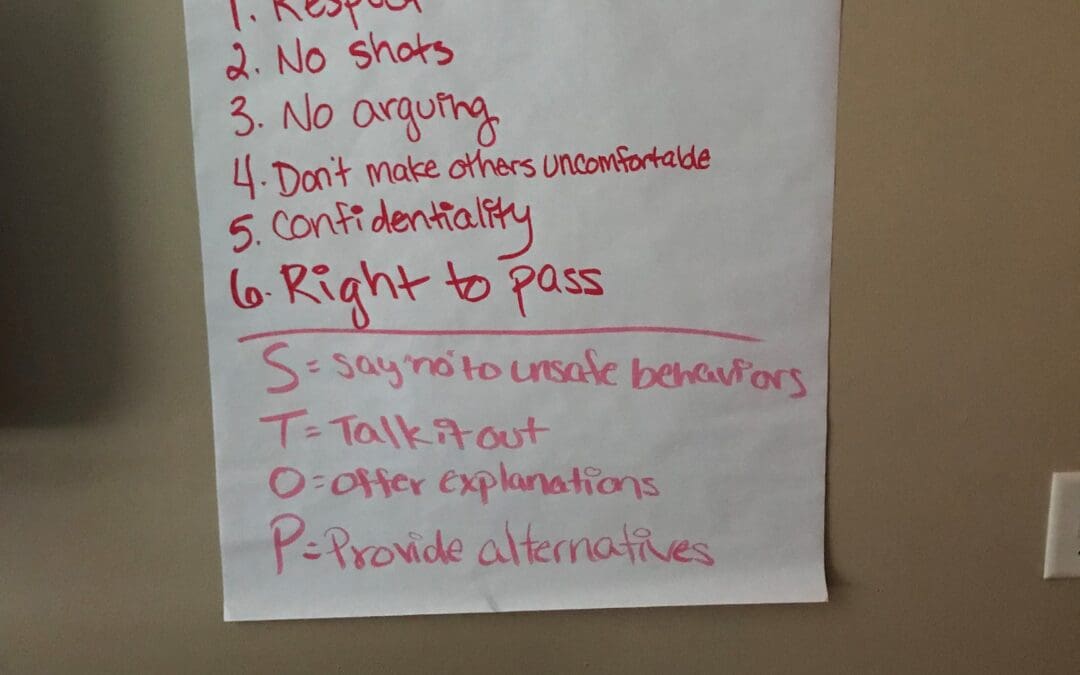 1. Respect
2. No shots
3. No arguing
4. Don't make others uncomfortable
5. Confidentiality
6. Right to pass
S = say "no" to unsafe behaviors
T = Talk it out
O = offer explanations
P = Provide alternatives